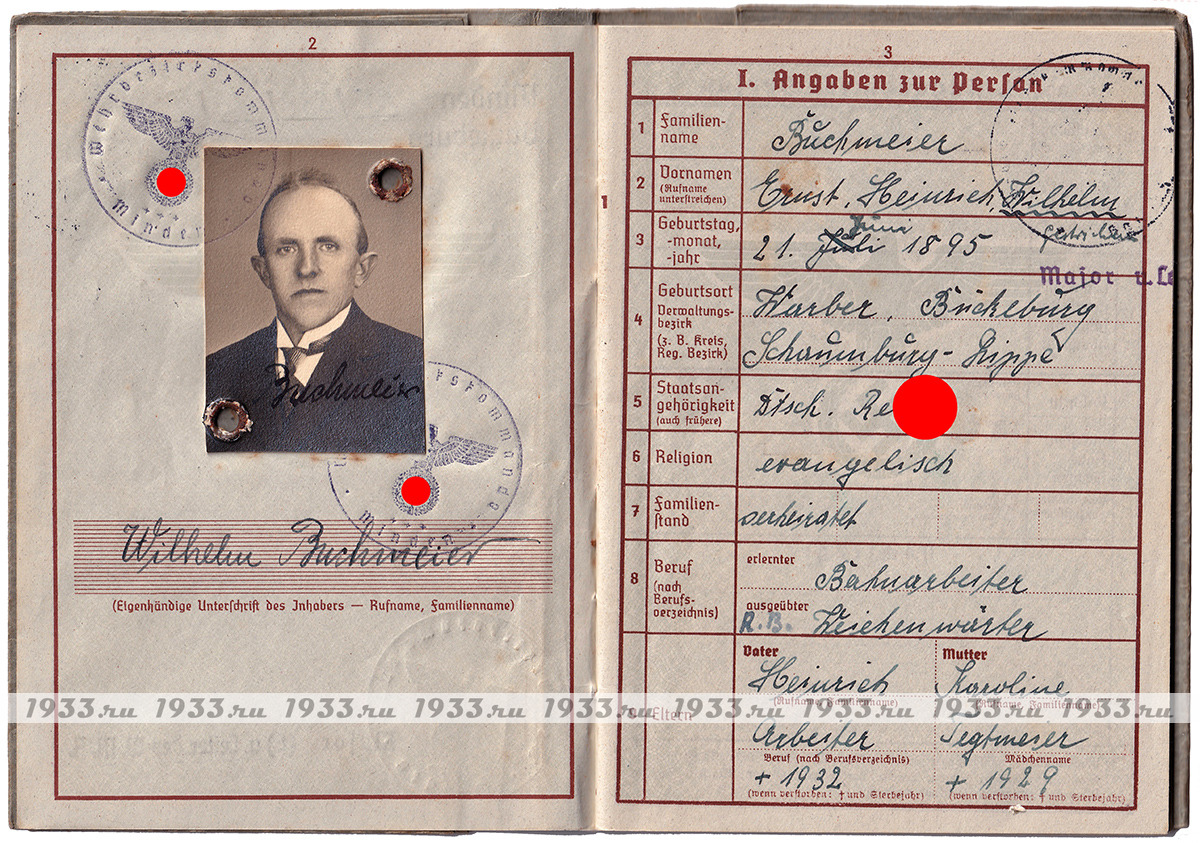 2
Wehrbezirkskomm
Minden
Buchmeier
Wilhelm Buchmeier
(Eigenhändige Unterschrift des Inhabers — Rufname, Familienname)
3
I. Angaben zur Person
1
1 Familien-
name
Buchmeier
2 Vornamen
(Rufname
unterstreichen)
Ernst, Heinrich, Wilhelm
3 Geburtstag,
-monat,
-jahr
Juni
21. Juli 1895
gestrichen
Major u. Le
4 Geburtsort
Verwaltungs-
bezirk
(z. B. Kreis,
Reg. Bezirk)
Warber, Bückeburg
Schaumburg-Lippe
5 Staatsan-
gehörigkeit
(auch frühere)
Dtsch. Re
6 Religion
evangelisch
7 Familien-
stand
verheiratet
8 Beruf
(nach
Berufs-
verzeichnis)
erlernter
Bahnarbeiter
ausgeübter
R.B. Weichenwärter
9 Eltern
Vater
Heinrich
(Rufname, Familienname)
Arbeiter
Beruf (nach Berufsverzeichnis)
+ 1932
(wenn verstorben: † und Sterbejahr)
Mutter
Karoline
(Rufname, Familienname)
Segtmeier
Mädchenname
+ 1929
(wenn verstorben: † und Sterbejahr)
1933.ru 1933.ru 1933.ru 1933.ru 1933.ru 1933.ru 1933.ru 1933.ru 1933.ru